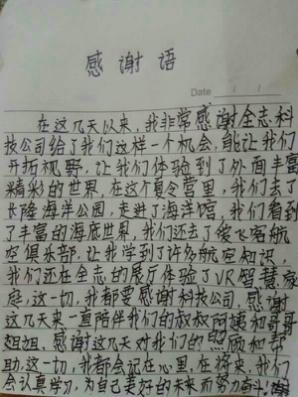 感谢语
Date
在这几天以来，我非常感谢全志科
技公司给了我们这样一个机会，能让我们
开拓视野，让我们体验到了外面丰富
精彩的世界，在这个夏令营里，我们去了
长隆海洋公园，走进了海洋馆，我们看到
了丰富的海底世界，我们还去了俊飞客航
空俱乐部，让我学到了许多航空知识，
我们还在全志的展厅体验了VR智慧家
庭，这一切，我都要感谢科技公司，感谢
这几天来一直陪伴我们的叔叔阿姨和哥哥
姐姐，感谢这几天对我们的照顾和帮
助，这一切，我都会记在心里，在将来，我们
会认真学习，为自己美好的未来而努力奋斗！谢谢